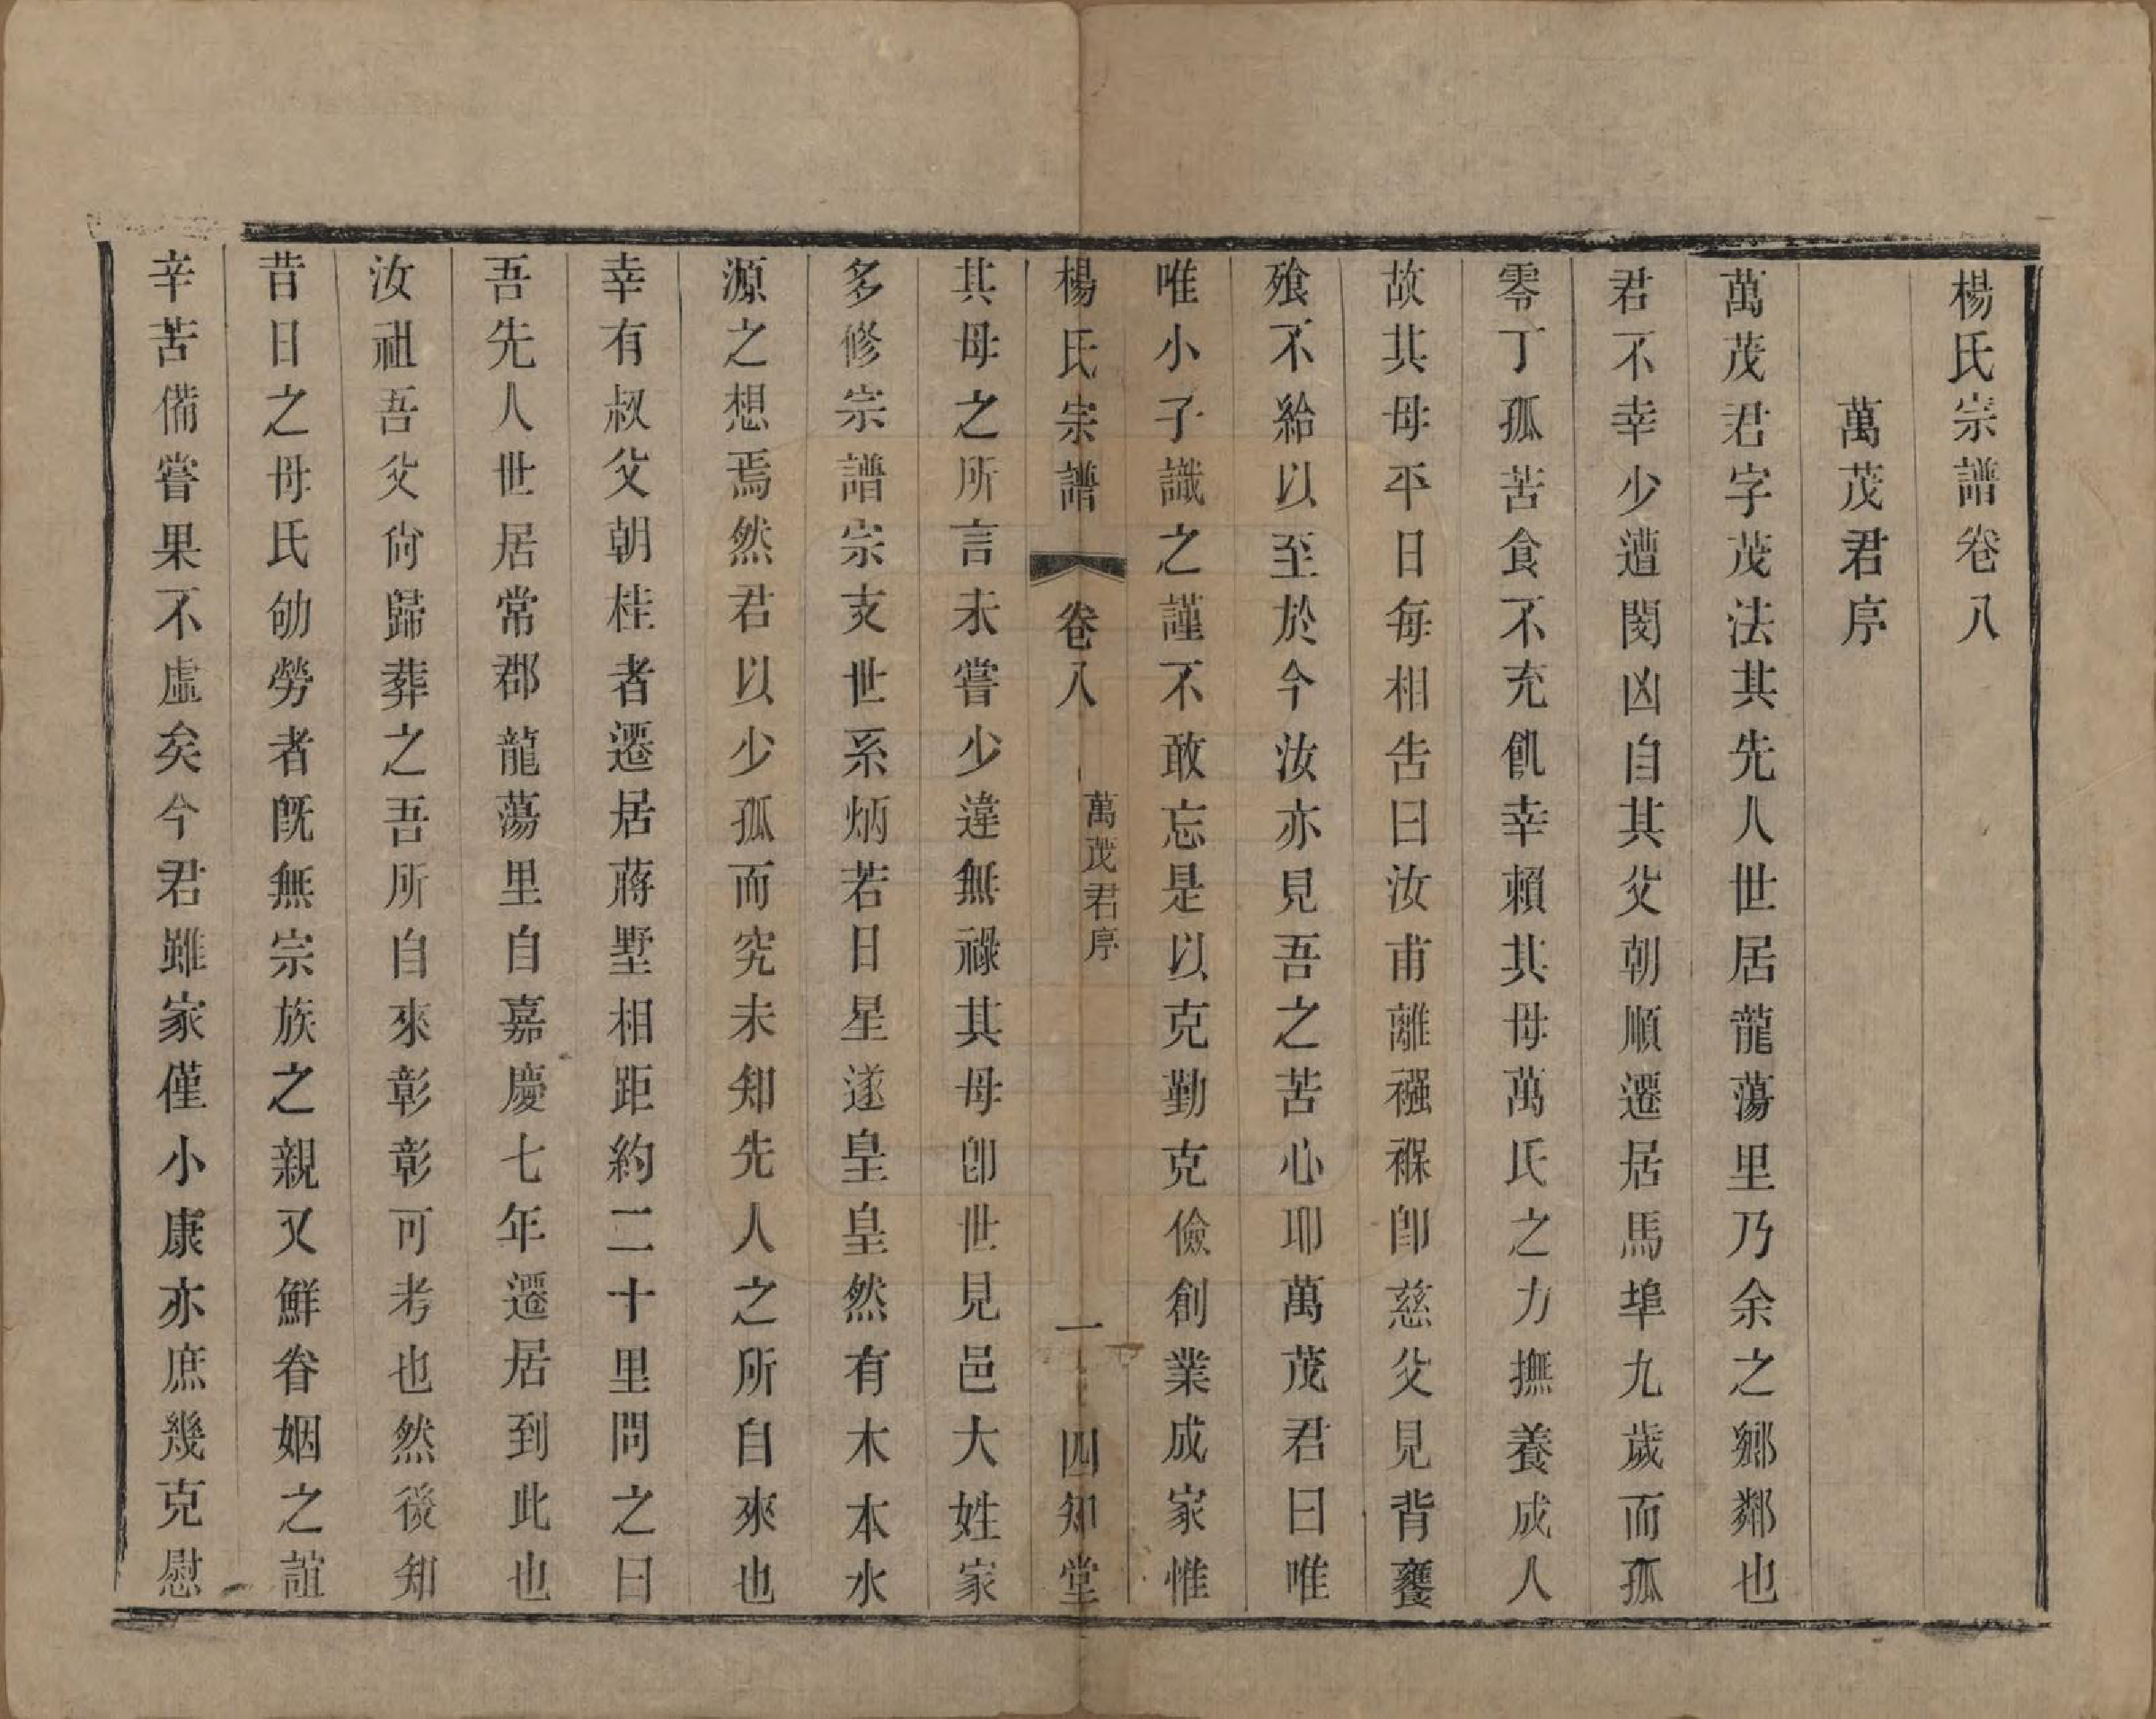 楊氏宗譜卷八
萬茂君序
萬茂君字茂法其先人世居龍蕩里乃余之鄉鄰也
君不幸少遭閔凶自其父朝順遷居馬埠九歲而孤
零丁孤苦食不充飢幸賴其母萬氏之力撫養成人
故其母平日每相告曰汝甫離襁褓卽慈父見背饔
飱不給以至於今汝亦見吾之苦心耶萬茂君曰唯
唯小子識之謹不敢忘是以克勤克儉創業成家惟
楊氏宗譜 卷八 萬茂君序 一 四知堂
其母之所言未嘗少違無祿其母卽世見邑大姓家
多修宗譜宗支世系炳若日星遂皇皇然有木本水
源之想焉然君以少孤而究未知先人之所自來也
幸有叔父朝桂者遷居蔣墅相距約二十里問之曰
吾先人世居常郡龍蕩里自嘉慶七年遷居到此也
汝祖吾父尙歸葬之吾所自來彰彰可考也然後知
昔日之母氏劬勞者旣無宗族之親又鮮眷姻之誼
辛苦備嘗果不虛矣今君雖家僅小康亦庶幾克慰